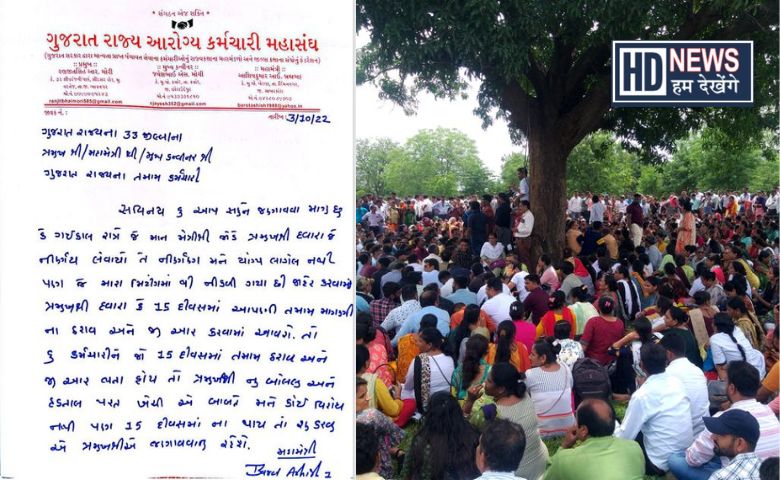 * સંગઠન એજ શક્તિ *
ગુજરાત રાજ્ય આરોગ્ય કર્મચારી મહાસંઘ
* પ્રમુખ *
* મુખ્ય કન્વીનર *
* મહામંત્રી *
ranjitbhaimori585@gmail.com
જાવક નં. :
તારીખ : 3/10/22
ગુજરાત રાજ્યના 33 જીલ્લાના
પ્રમુખ શ્રી / મહામંત્રી શ્રી / મુખ્ય કન્વીનર શ્રી
ગુજરાત રાજ્યના તમામ કર્મચારી
સવિનય કે આપ સર્વેને જણાવવા માગુ છુ
કે ગઈકાલ રાત્રે જે માન મંત્રીશ્રી જોડે પ્રમુખશ્રી દ્વારા જે
નિર્ણય લેવાયો તે નિર્ણય મને યોગ્ય લાગેલ નથી
પણ હું મારા નિકળી ગયા છી જાહેર કરવામાં
પ્રમુખશ્રી દ્વારા કે 15 દિવસમાં આપણી તમામ માગણી
ના ઠરાવ અને જી આર કરવામાં આવશે. તો
હુ કર્મચારીને જો 15 દિવસમાં તમામ ઠરાવ અને
જી આર થતા હોય તો પ્રમુખશ્રી નુ બોલવુ અને
હડતાલ પરત ખેચી એ બાબતે મને કોઈ વિરોધ
નથી પણ 15 દિવસમાં ના થાય તો શુ કરવુ
એ પ્રમુખશ્રીએ જણાવવાનુ રહેશે.
મહામંત્રી
HD NEWS
हम देखेंगे